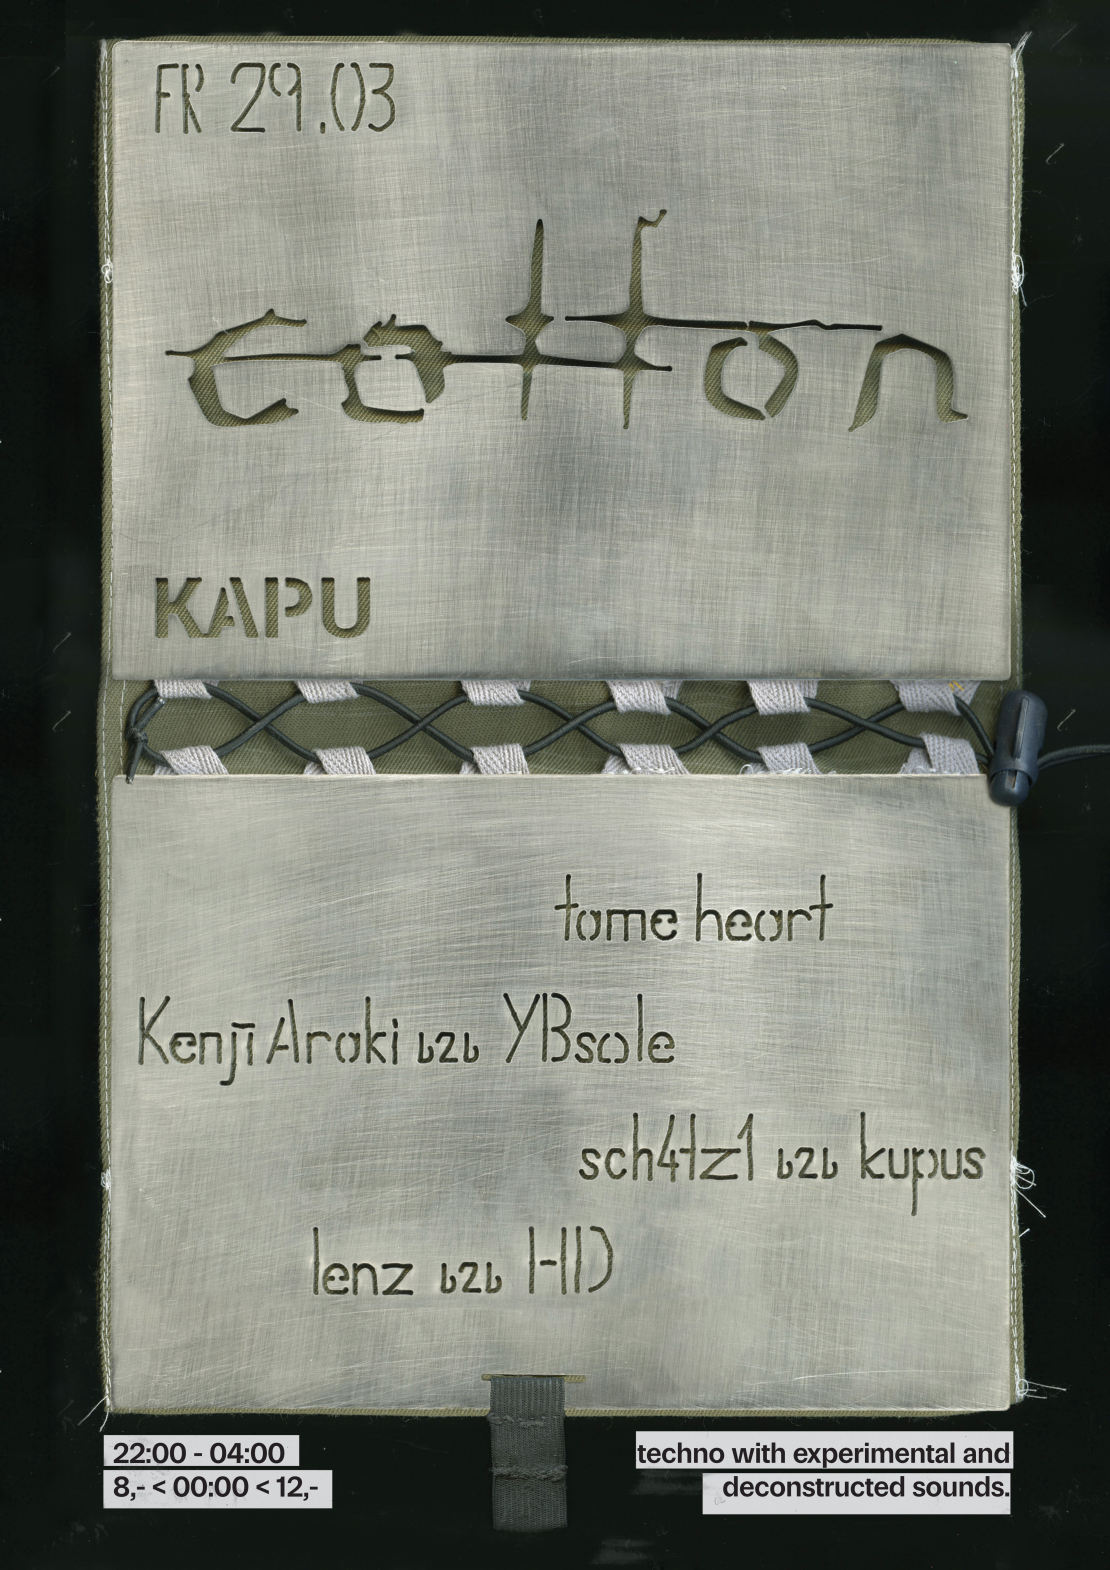 FR 29.03
cotton
KAPU
tame heart
Kenji Araki b2b YBsole
sch4tz1 b2b kupus
lenz b2b HID
22:00 - 04:00
8,- < 00:00 < 12,-
techno with experimental and
deconstructed sounds.